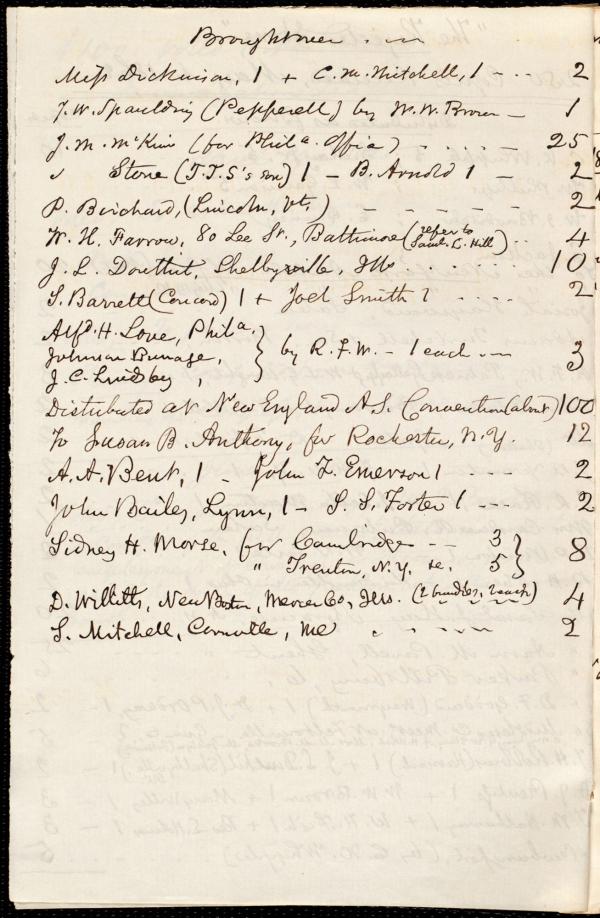 Brought over . —
Miss Dickinson, 1 + C. M. Mitchell, 1 - - - 2
J. W. Spaulding (Pepperell) by W. W. Brown — 1
J. M. McKim (for Phila. Office) - - - - - 25
" Stone (J. T. S's son) 1 — B. Arnold 1 — 2
P. Birchard, (Lincoln, Vt.) — — — — — 2
W. H. Farrow, 80 Lee St., Baltimore (refer to Saml. L. Hill) . . 4
J. L. Douthit, Shelbyville, Ills. . . . . . 10
S. Barrett (Concord) 1 + Joel Smith 1 . . . . 2
Alfd. H. Love, Phila.
Johnson , } by R. F. W. — 1 each . — 3
J. C. Lindsley ,
Distributed at New England A. S. Convention (about) 100
To Susan B. Anthony, for Rochester, N. Y. 12
A. A. Bent, 1 — John L. Emerson 1 - - - - 2
John Bailey, Lynn, 1 — S. S. Foster 1 - - - 2
Sidney H. Morse, for Cambridge - - 3 } 8
" Trenton, N. Y. &c. 5
D. Willitts, New Boston, Mercer Co, Ills. (2 bundles, 2 each) 4
S. Mitchell, Cornville, Me . . - - - - 2